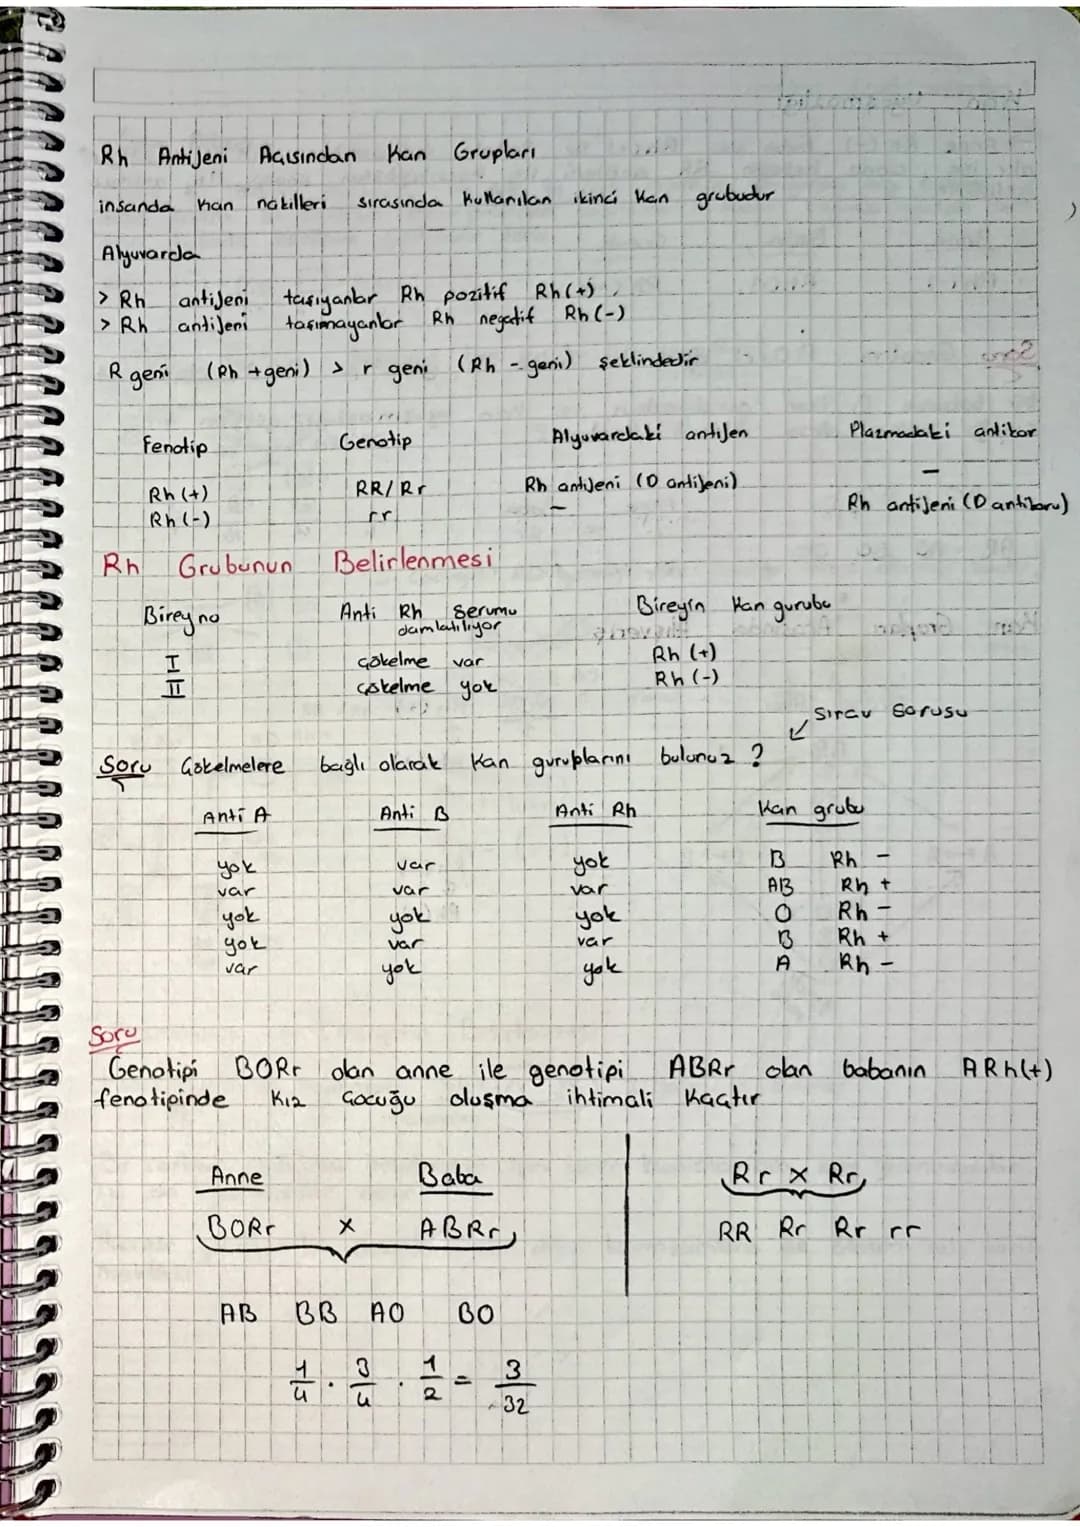 Rh Antijeni Açısından Kan Grupları
insanda kan nakilleri sırasında kullanılan ikinci kan grubudur
Alyuvarda
> Rh antijeni taşıyanlar Rh pozitif Rh(+)
> Rh antijeni taşımayanlar Rh negatif Rh(-)
R geni (Rh +geni) > r geni (Rh - geni) şeklindedir
Fenotip Genotip Alyuvardaki antijen Plazmadaki antikor
Rh (+) RR/Rr Rh antijeni (D antijeni) -
Rh (-) rr - Rh antijeni (D antikoru)
Rh Grubunun Belirlenmesi
Birey no Anti Rh Serumu damlatılıyor Bireyin Kan gurubu
I çökelme var Rh (+)
II çökelme yok Rh (-)
Sınav Sorusu
Soru Çökelmelere bağlı olarak kan guruplarını bulunuz ?
Anti A Anti B Anti Rh Kan grubu
yok var yok B Rh -
var var var AB Rh +
yok yok yok O Rh -
yok var var B Rh +
var yok yok A Rh -
Soru
Genotipi BORr olan anne ile genotipi ABRr olan babanın ARh(+)
fenotipinde Kız Çocuğu oluşma ihtimali Kaçtır
Anne Baba Rr x Rr
BORr x ABRr RR Rr Rr rr
AB BB AO BO
1/4 . 3/4 . 1/2 = 3/32